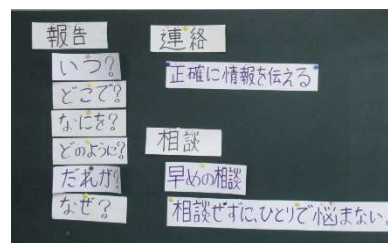 報告
いつ?
どこで?
なにを?
どのように?
だれが?
なぜ?
連絡
正確に情報を伝える
相談
早めの相談
相談せずに、ひとりで悩まない。